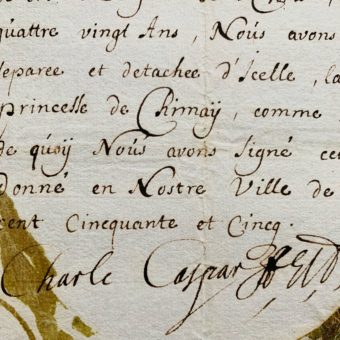 quattre vingt Ans, Nous avons
separee et detachee d'Icelle, la
princesse de Chimaÿ, comme
de quoÿ Nous avons signé ce
donné en Nostre Ville de
cent Cincquante et Cincq.
Charle Caspar